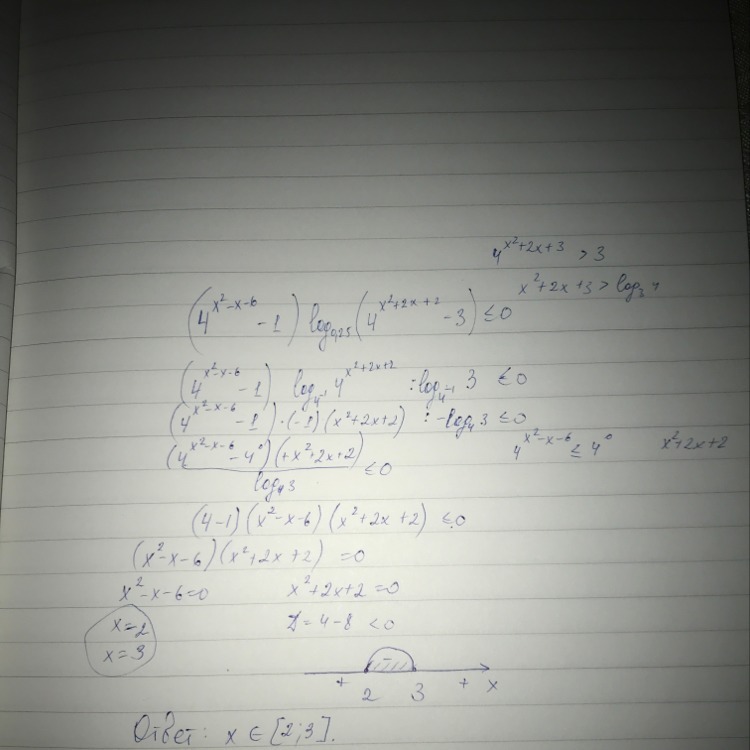 4^{x²+2x+3} > 3
x²+2x+3 > log₃ 4
(4^{x²-x-6} - 1) log_{0,25} (4^{x²+2x+2} - 3) ≤ 0
(4^{x²-x-6} - 1) log_{4⁻¹} 4^{x²+2x+2} : log_{4⁻¹} 3 ≤ 0
(4^{x²-x-6} - 1) · (-1) (x²+2x+2) : -log₄ 3 ≤ 0
(4^{x²-x-6} - 4⁰)(+x²+2x+2) / log₄ 3 ≤ 0
4^{x²-x-6} ≤ 4⁰ x²+2x+2
(4-1)(x²-x-6)(x²+2x+2) ≤ 0
(x²-x-6)(x²+2x+2) = 0
x²-x-6=0 x²+2x+2=0
x=-2 D = 4-8 < 0
x=3
+ - + x
2 3
Ответ: x ∈ [2;3].